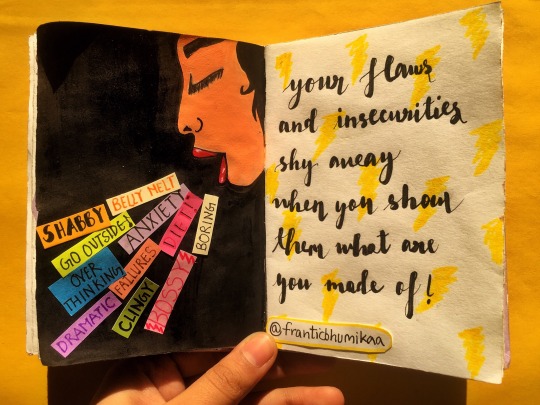 SHABBY
BELLY MELT
GO OUTSIDE
ANXIETY
DIET
BORING
OVER
THINKING
FAILURES
DRAMATIC
CLINGY
BOSSY
your flaws
and insecurities
shy away
when you show
them what are
you made of!
@franticbhumikaa